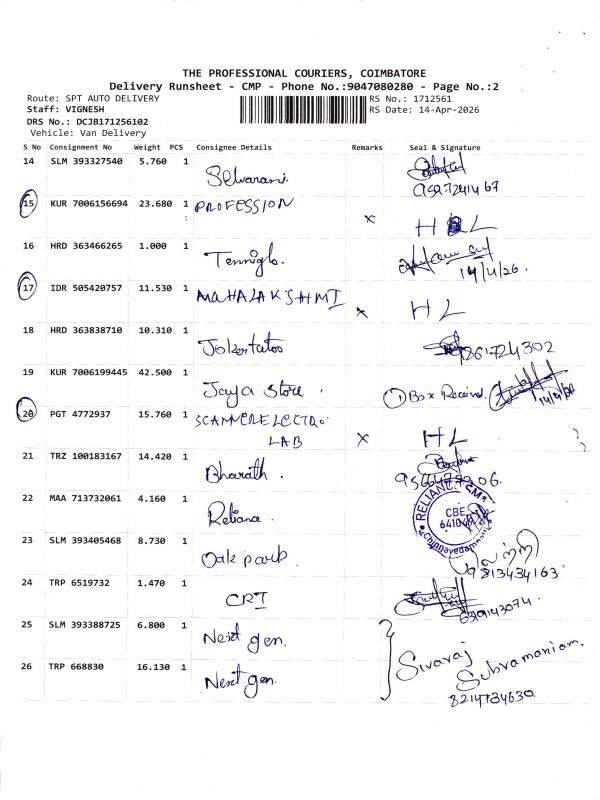 THE PROFESSIONAL COURIERS, COIMBATORE
Delivery Runsheet - CMP - Phone No.:9047080280 - Page No.:2
Route: SPT AUTO DELIVERY RS No.: 1712561
Staff: VIGNESH RS Date: 14-Apr-2026
DRS No.: DCJB171256102
Vehicle: Van Delivery
S No Consignment No Weight PCS Consignee Details Remarks Seal & Signature
14 SLM 393327540 5.760 1 Selvarani
15 KUR 7006156694 23.680 1 PROFESSION x H L
16 HRD 363466265 1.000 1 14/4/26.
17 IDR 505420757 11.530 1 MAHALAKSHMI x HL
18 HRD 363838710 10.310 1
19 KUR 7006199445 42.500 1 Jaya Store. 1 Box Received.
20 PGT 4772937 15.760 1 SCANNERELECTRO
LAB x HL
21 TRZ 100183167 14.420 1 Bharath.
22 MAA 713732061 4.160 1 Reliance. RELIANCE CBE
23 SLM 393405468 8.730 1 Oak park
9813434163
24 TRP 6519732 1.470 1 CRI
25 SLM 393388725 6.800 1 Next gen.
Sivaraj
Subramaniam.
26 TRP 668830 16.130 1 Next gen.